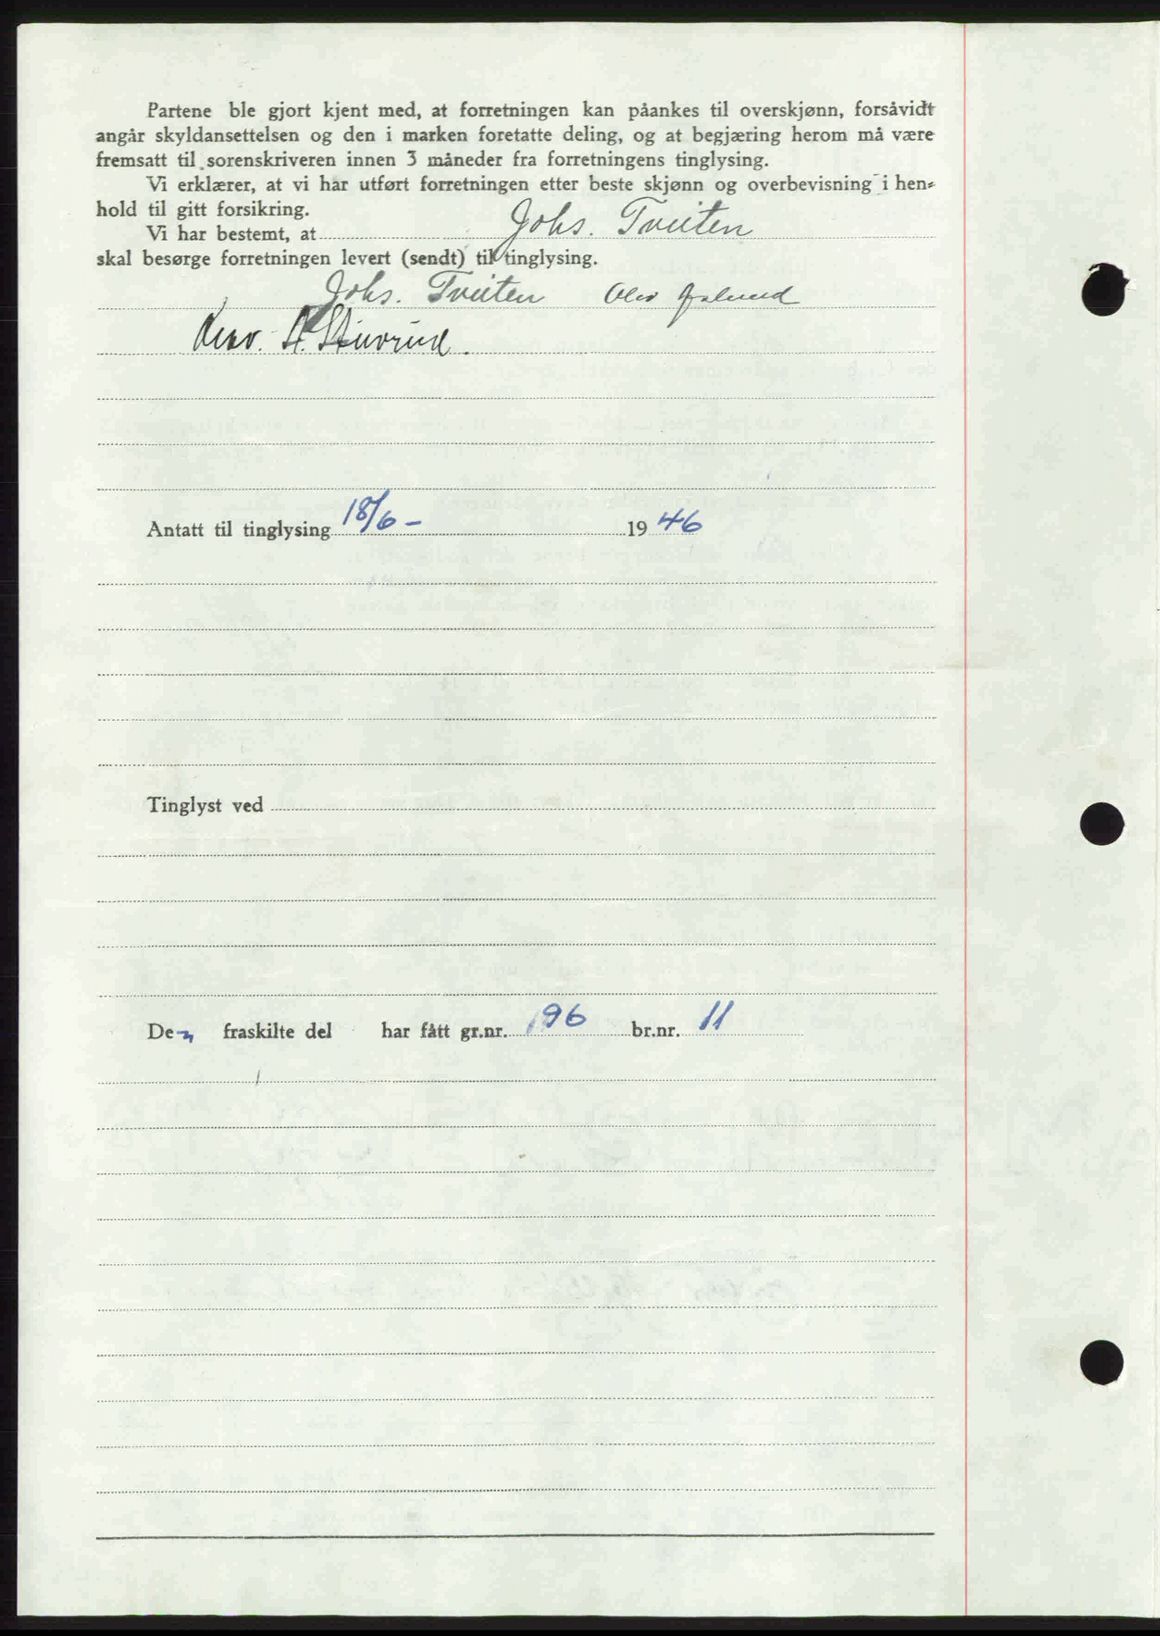 Partene ble gjort kjent med, at forretningen kan påankes til overskjønn, forsåvidt
angår skyldansettelsen og den i marken foretatte deling, og at begjæring herom må være
fremsatt til sorenskriveren innen 3 måneder fra forretningens tinglysing.
Vi erklærer, at vi har utført forretningen etter beste skjønn og overbevisning i hen-
hold til gitt forsikring.
Vi har bestemt, at Johs. Tveiten
skal besørge forretningen levert (sendt) til tinglysing.
Johs. Tveiten Olav
A.
Antatt til tinglysing 18/6 - 1946
Tinglyst ved
Den fraskilte del har fått gr.nr. 96 br.nr. 11